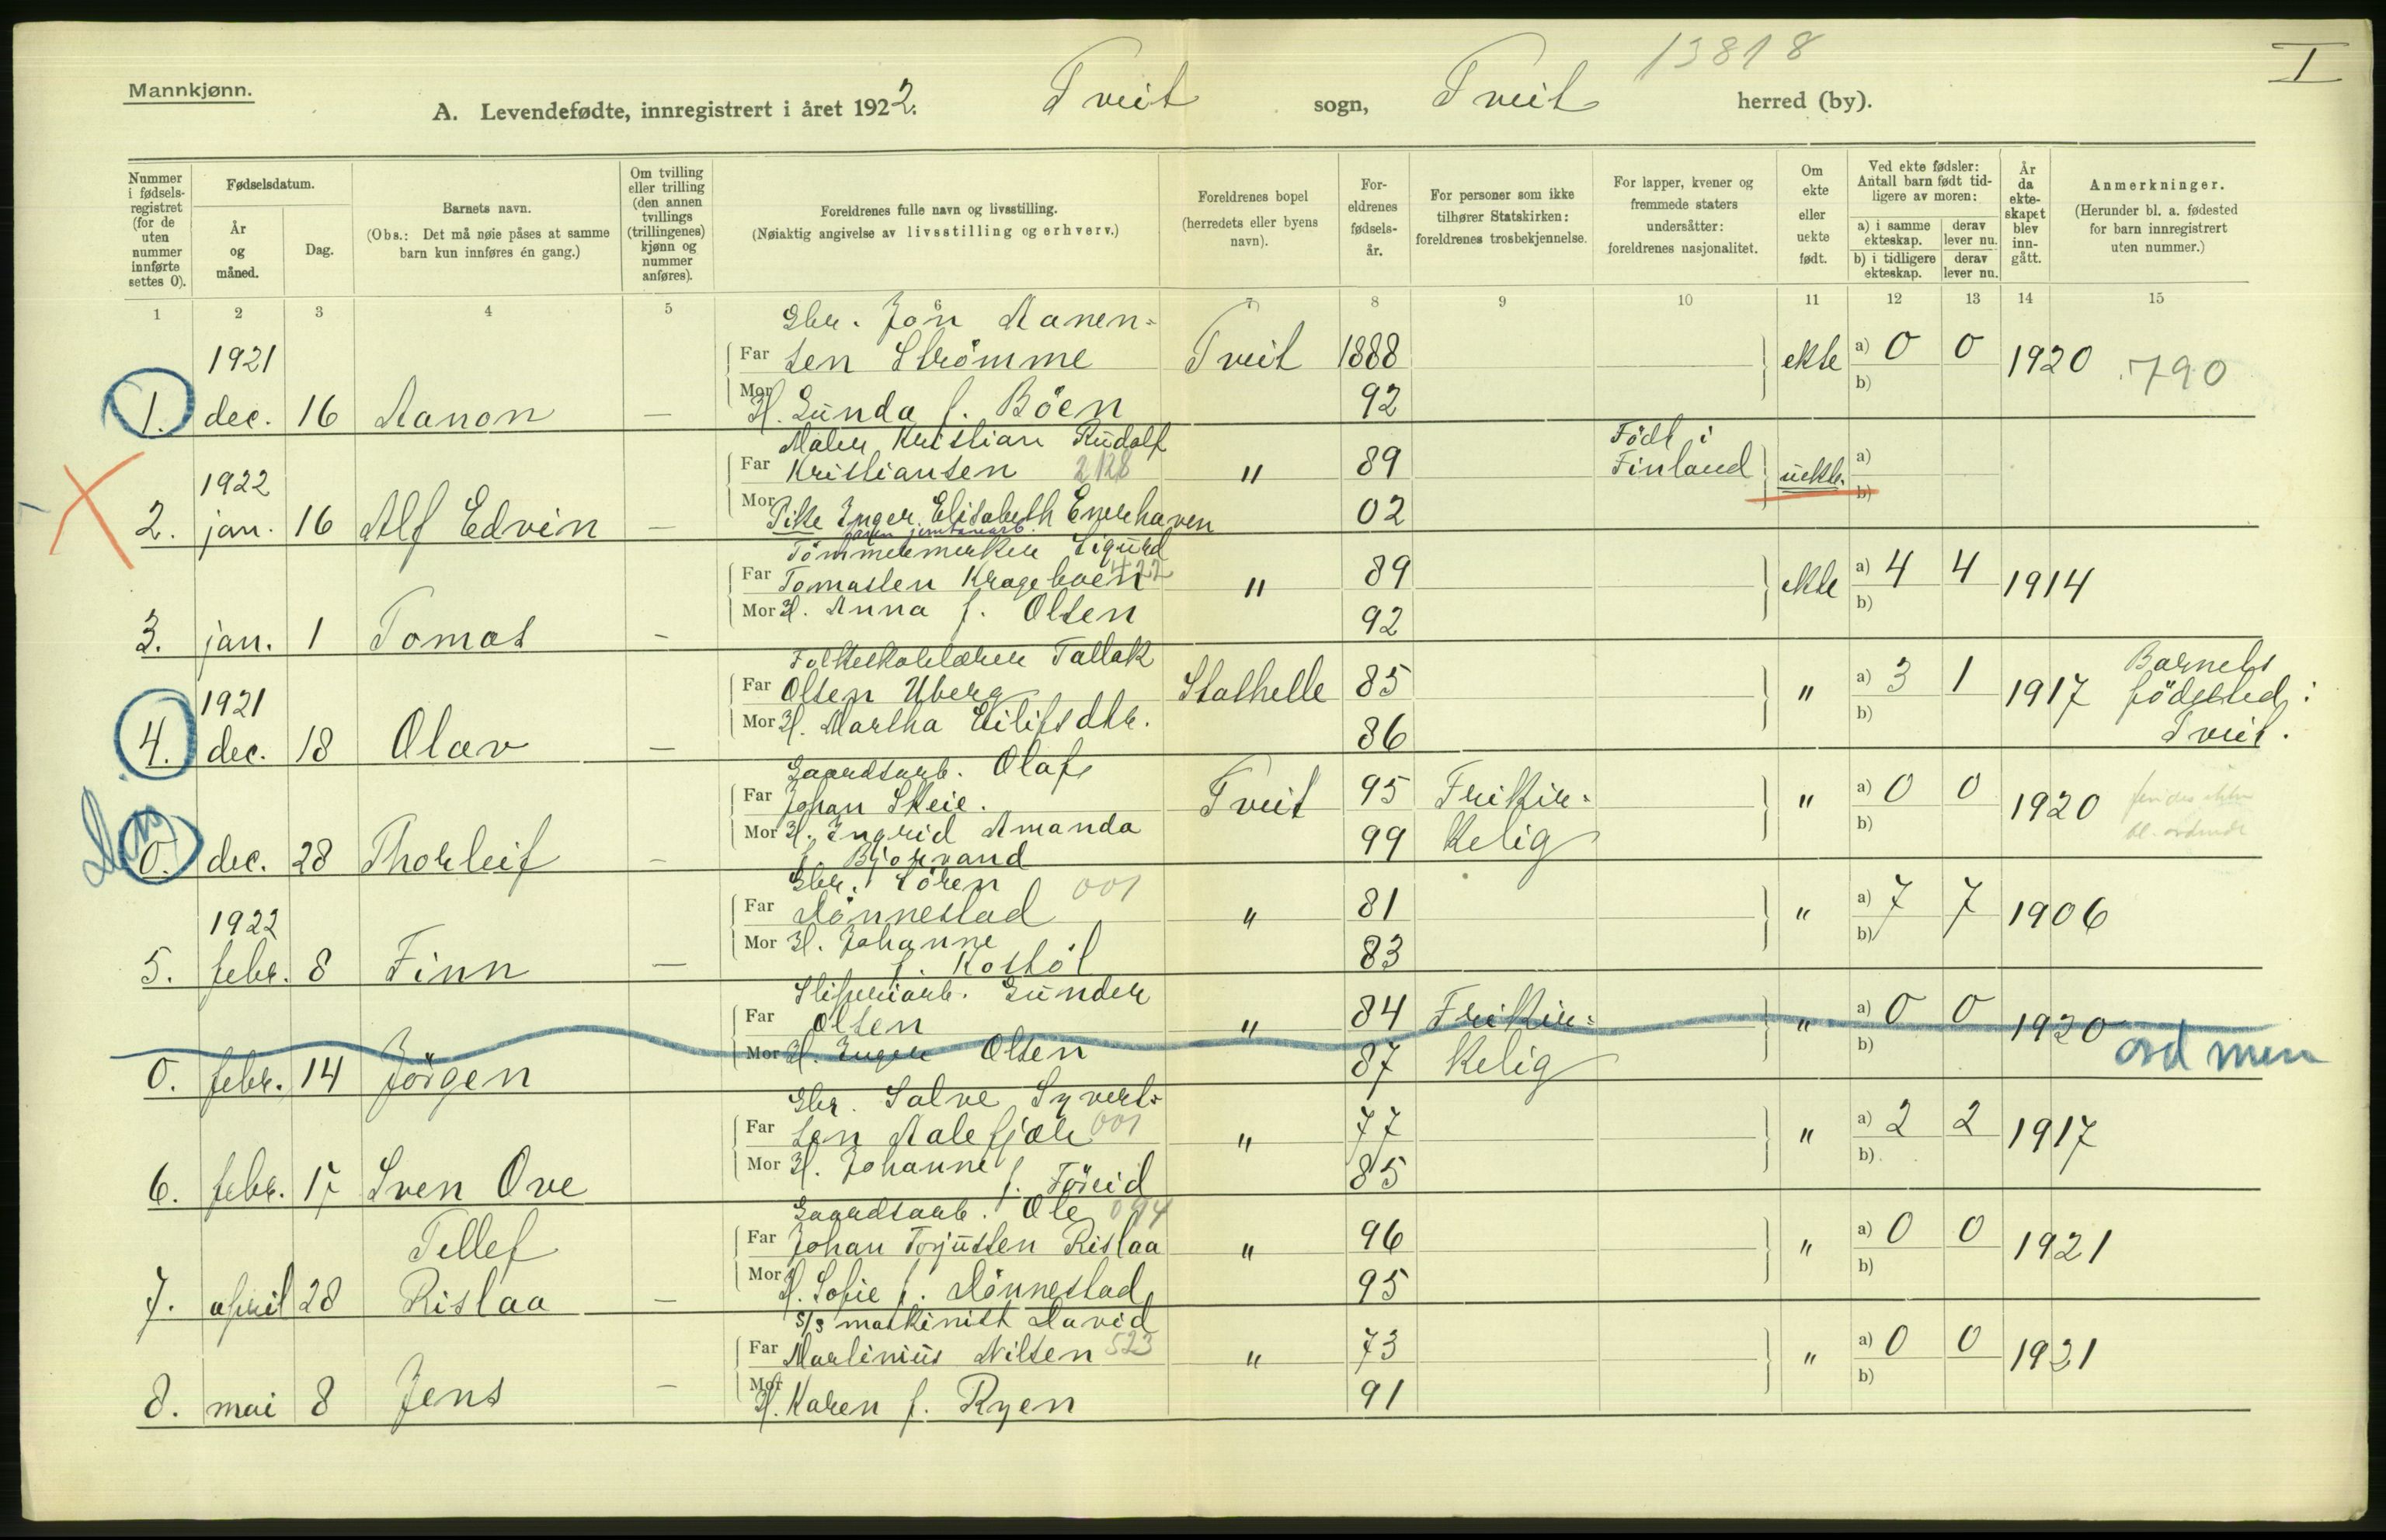 13818
I
Mannkjønn.
A. Levendefødte, innregistrert i året 1922. Tveit sogn, Tveit herred (by).
Nummer i fødsels- registret (for de uten nummer innførte settes 0).
Fødselsdatum.
År og måned.
Dag.
Barnets navn.
(Obs.: Det må nøie påses at samme barn kun innføres én gang.)
Om tvilling eller trilling (den annen tvillings (trillingenes) kjønn og nummer anføres).
Foreldrenes fulle navn og livsstilling.
(Nøiaktig angivelse av livsstilling og erhverv.)
Foreldrenes bopel
(herredets eller byens navn).
For- eldrenes fødsels- år.
For personer som ikke tilhører Statskirken: foreldrenes trosbekjennelse.
For lapper, kvener og fremmede staters undersåtter: foreldrenes nasjonalitet.
Om ekte eller uekte født.
Ved ekte fødsler: Antall barn født tid- ligere av moren:
a) i samme ekteskap. derav lever nu.
b) i tidligere ekteskap. derav lever nu.
År da ekte- skapet blev inn- gått.
Anmerkninger.
(Herunder bl. a. fødested for barn innregistrert uten nummer.)
1 2 3 4 5 6 7 8 9 10 11 12 13 14 15
Gbr. Jon Aanen-
1921 Far sen Strømme Tveit 1888 ekte a) 0 0 1920 790
1. dec. 16 Aanon — Mor H. Gunda f. Böen 92 b)
Maler Kristian Rudolf Födt i
1922 Far Kristiansen 2128 " 89 Finland uekte. a)
2. jan. 16 Alf Edvin — Mor Pike Inger Elisabeth Enerhaven 02 b)
Tömmermerker Sigurd
Far Tomassen Krageboen 422 " 89 ekte a) 4 4 1914
3. jan. 1 Tomas - Mor H. Anna f. Olsen 92 b)
Folkeskolelærer Tallak Barnets
1921 Far Olsen Uberg Stathelle 85 " a) 3 1 1917 födested:
4. dec. 18 Olav — Mor H. Martha Eilifsdtr. 86 b) Tveit.
Gaardsarb. Olaf
Far Johan Skeie. Tveit 95 Frikir- " a) 0 0 1920
0. dec. 28 Thorleif - Mor H. Ingrid Amanda 99 kelig b)
f. Bjorvand
Gbr. Sören 001
1922 Far Dönnestad " 81 " a) 7 7 1906
5. febr. 8 Finn — Mor H. Johanne 83 b)
f. Kostöl
Sliperiarb. Gunder
Far Olsen " 84 Frikir- " a) 0 0 1920
0. febr. 14 Jörgen Mor H. Inger Olsen 87 kelig b)
Gbr. Salve Syvert-
Far sen Aalefjær 001 " 77 " a) 2 2 1917
6. febr. 17 Sven Ove Mor H. Johanne f. Föreid 85 b)
Gaardsarb. Ole 094
Tellef Far Johan Torjussen Rislaa " 96 " a) 0 0 1921
7. april 28 Rislaa — Mor H. Sofie f. Dönnestad 95 b)
S/S maskinist David
Far Martinius Nilsen 523 " 73 " a) 0 0 1921
8. mai 8 Jens — Mor H. Karen f. Ryen 91 b)